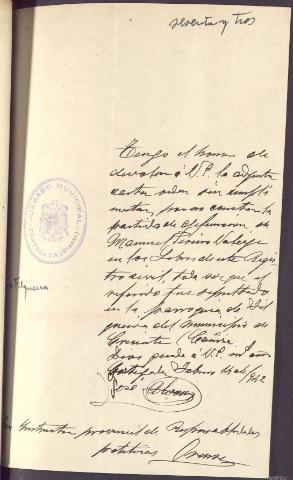 sesenta y tres
Tengo el honor de
devolver á V.S. la adjunta
carta orden sin cumpli
mentar, por no constar la
partida de defuncion de
Manuel Piñeiro
en los libros de este Regis
tro civil, toda vez que el
referido fue sepultado
en la parroquia de Fil
gueira del municipio de
Crecente
Dios guarde á V.S. m. años
Febrero
José Alvarez
JUZGADO MUNICIPAL
Filgueira
Instructor provincial de Responsabilidades
políticas Orense